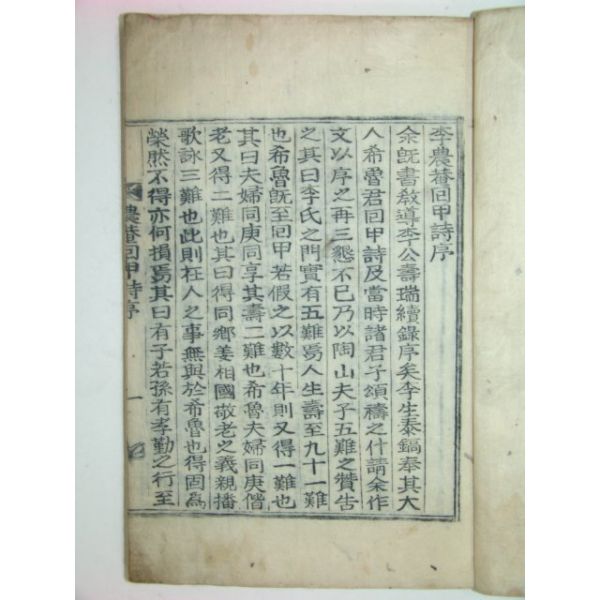 李農菴回甲詩序
余旣書敎導李公壽瑞續錄序矣李生泰鎬奉其大
人希魯君回甲詩及當時諸君子頌禱之什請余作
文以序之再三懇不已乃以陶山夫子五難之贊告
之其曰李氏之門實有五難焉人生壽至九十一難
也希魯旣至回甲若假之以數十年則又得一難也
其曰夫婦同庚同享其壽二難也希魯夫婦同庚偕
老又得二難也其曰得同鄕姜相國敬老之義親播
歌詠三難也此則在人之事無與於希魯也得固爲
榮然不得亦何損焉其曰有子若孫有孝勤之行至
農菴回甲詩序
一